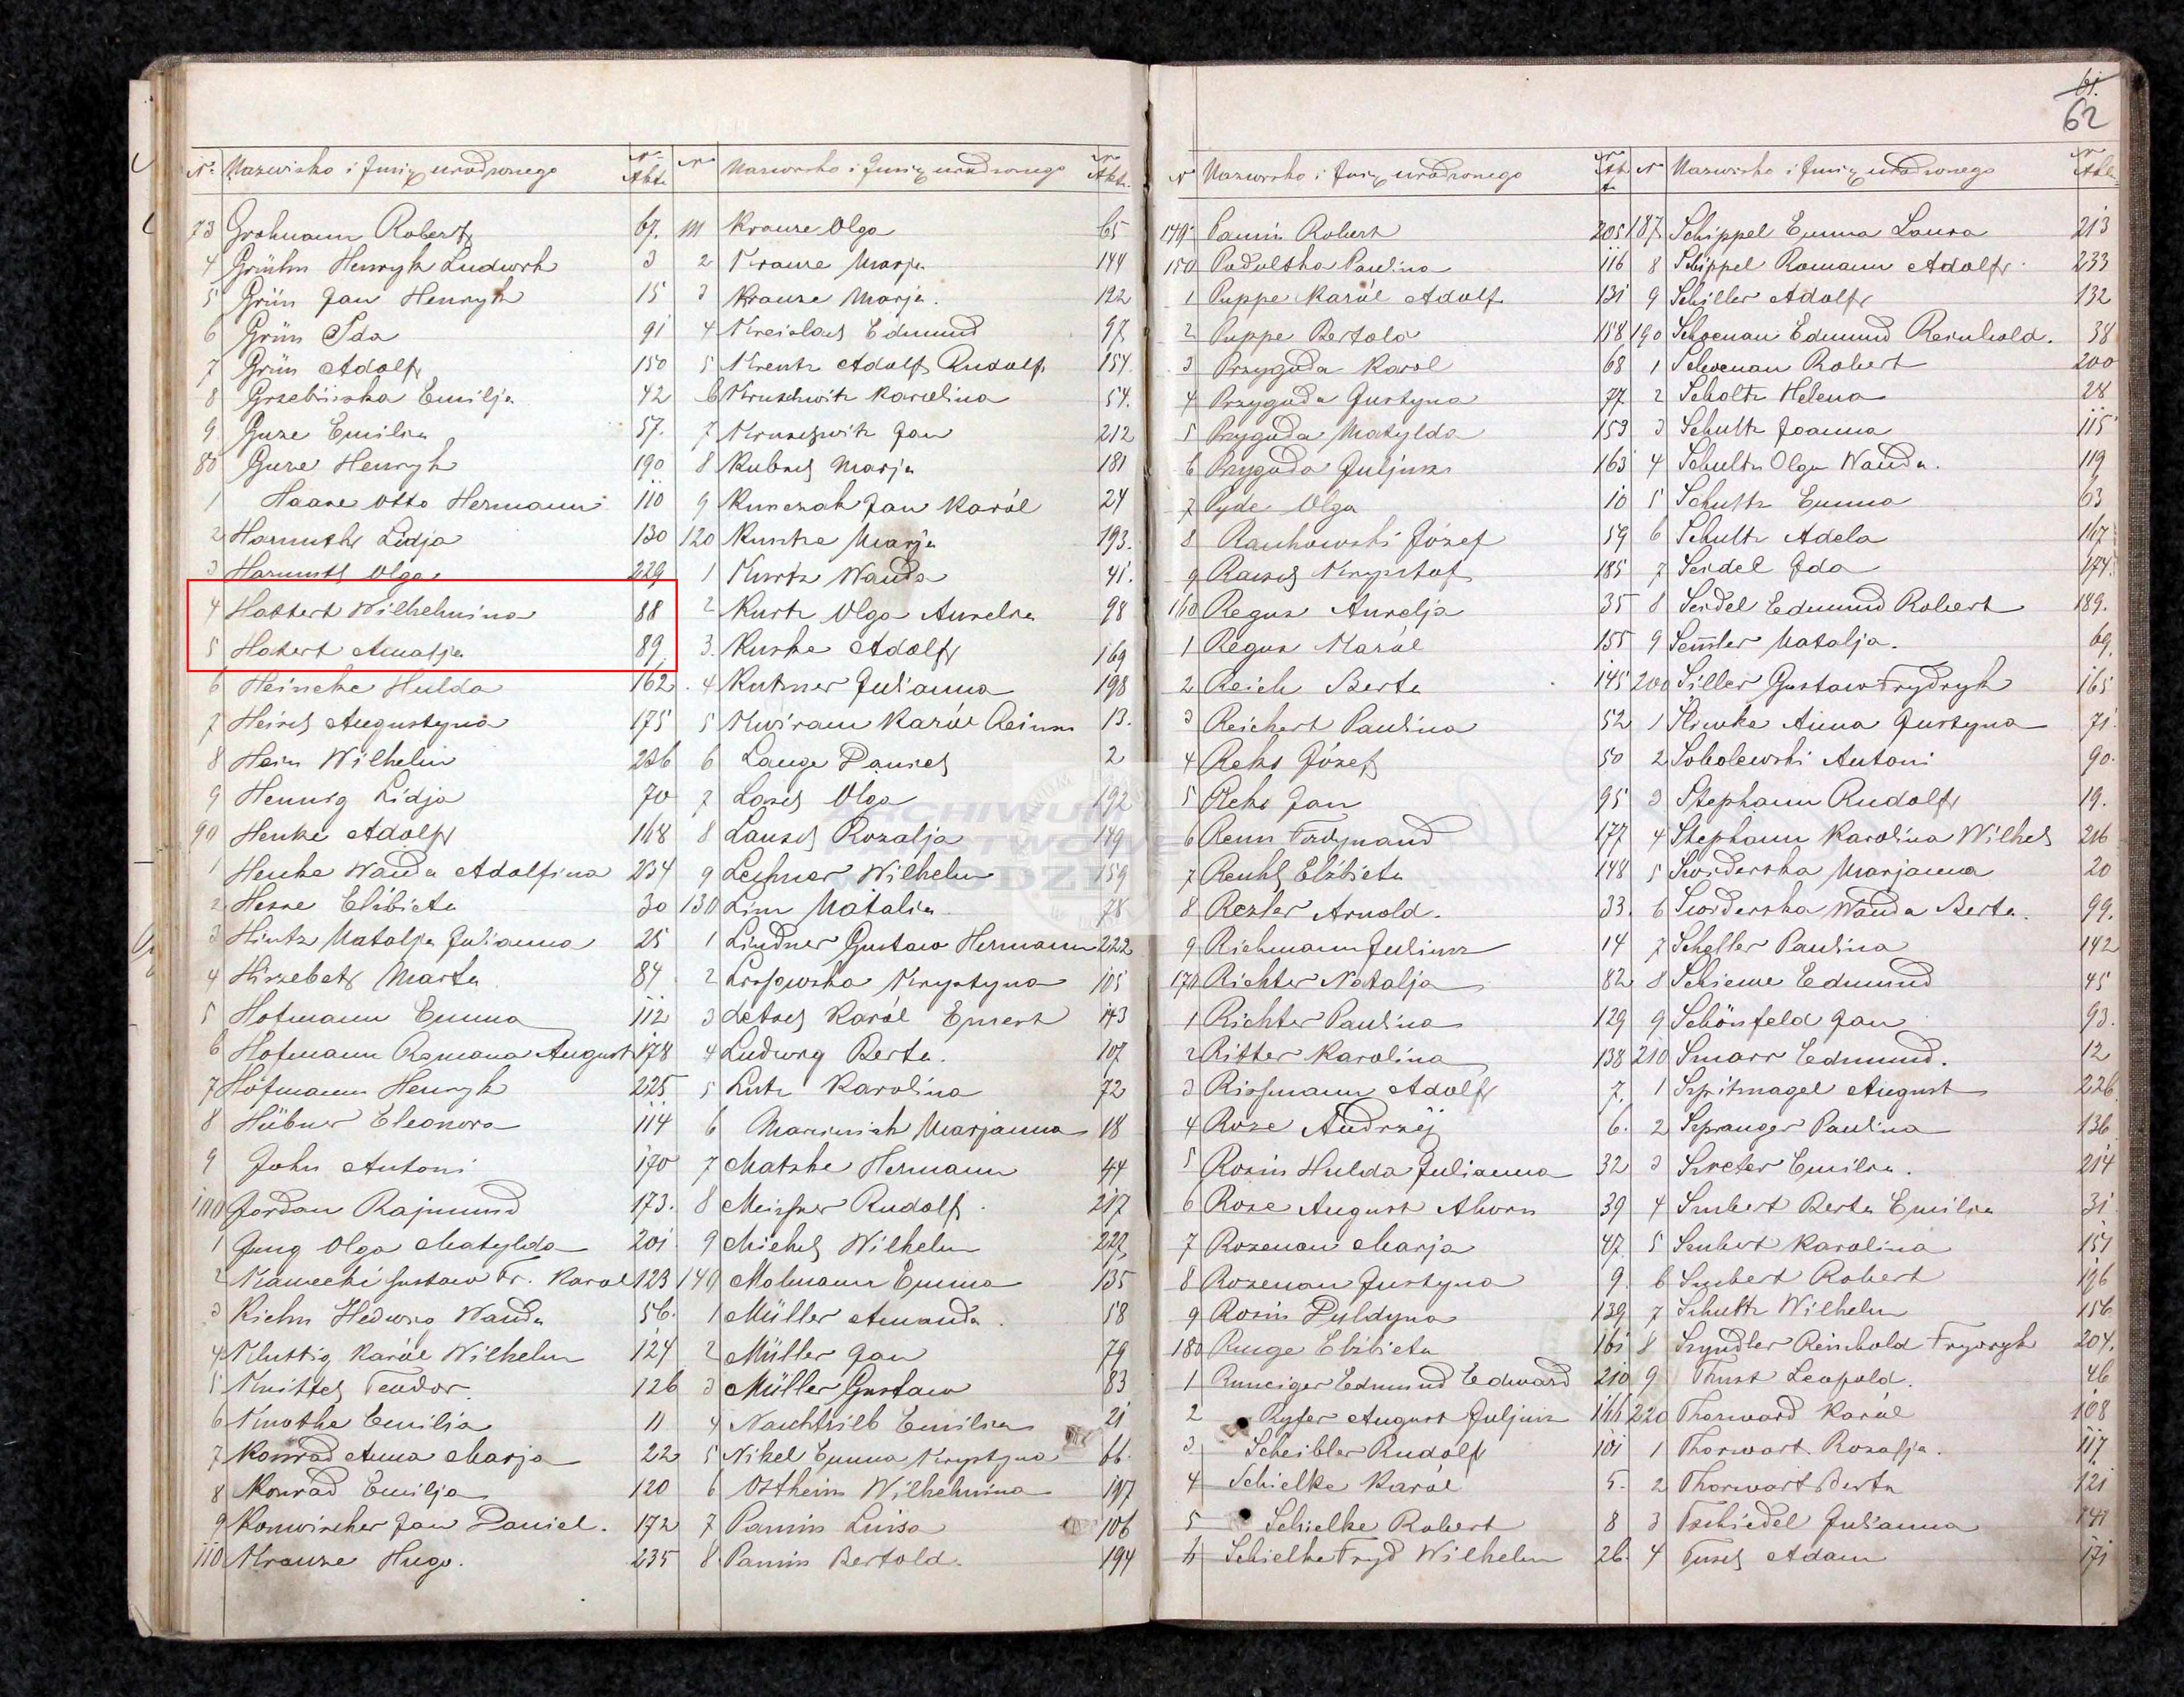 61.
62
No Nazwisko i Imię urodzonego No Aktu
73 Grohmann Robert 67.
4 Grühn Henryk Ludwik 3
5 Grün Jan Henryk 15
6 Grün Ida 91
7 Grün Adolf 150
8 Grzebińska Emilja 42
9 Guze Emilia 57.
80 Guze Henryk 190
1 Haase Otto Hermann 110
2 Harmuth Lidja 130
3 Harmuth Olga 229
4 Hattert Wilhelmina 88
5 Hatert Amalja 89
6 Heincke Hulda 162
7 Heinch Augustyna 175
8 Hein Wilhelm
9 Hennig Lidja 70
90 Henke Adolf 168
1 Henke Wanda Adolfina 234
2 Hesse Elżbieta 30
3 Hintz Natalja Julianna 25
4 Marta 84
5 Hofmann Emma 112
6 Hofmann Romana August 178
7 Hofmann Henryk 225
8 Hübner Eleonora 114
9 John Antoni 170
100 Jordan Rajmund 173.
1 Jung Olga Matylda 201
2 Kamecki Gustaw Fr. Karol 123
3 Kiehn Hedwig Wanda 56.
4 Kluttig Karól Wilhelm 124
5 Knittel Teodor. 126
6 Knothe Emilia 11
7 Konrad Anna Marja 22
8 Konrad Emilja 120
9 Konwischer Jan Daniel. 172
110 Krause Hugo. 235
No Nazwisko i Imię urodzonego No Aktu
111 Krause Olga 65
2 Krause Marja 144
3 Krause Marja. 122
4 Edmund 97
5 Krentz Adolf Rudolf 154.
6 Kruschwitz Karolina 54.
7 Kruschwitz Jan 212
8 Marja 181
9 Kunczak Jan Karól 24
120 Kuntze Marja 193.
1 Kurtz Wanda 41.
2 Kurtz Olga Aurelia 98
3. Kuske Adolf 169
4 Kutzner Julianna 198
5 Karól 13.
6 Lange Daniel 2
7 Olga 192
8 Rozalja 149
9 Wilhelm 159
130 Natalia 78
1 Lindner Gustaw Hermann 222
2 Krystyna 105
3 Karól 143
4 Ludwig Berta. 107
5 Lutz Karolina 72
6 Marjanna 18
7 Matzke Hermann 44
8 Meissner Rudolf. 217
9 Michel Wilhelm
140 Molmann Emma 135
1 Müller Amanda. 58
2 Müller Jan 79
3 Müller Gustaw 83
4 Emilia 21
5 Nikel Emma Krystyna 66.
6 Ostheim Wilhelmina 197
7 Pamin Luisa 106
8 Pamin Bertold. 194
No Nazwisko i Imię urodzonego No Aktu
149 Pamin Robert 205
150 Podolska Paulina 116
1 Puppe Karól Adolf 131
2 Puppe Bertold 158
3 Przygoda Karol 68
4 Przygoda Justyna 77
5 Przygoda Matylda 153
6 Przygoda Juljusz 163
7 Pyde Olga 10
8 Rachowski Józef 59
9 Krysztof 185
160 Regus Aurelja 35
1 Regus Karól 155
2 Reich Berta 145
3 Reichert Paulina 52
4 Reks Józef 50
5 Reks Jan 95
6 Renn Ferdynand 177
7 Elżbieta 148
8 Rezler Arnold. 33.
9 Richmann Juliusz 14
170 Richter Natalja 82
1 Richter Paulina 129
2 Ritter Karolina 138
3 Rissmann Adolf 7.
4 Roze Andrzéj 6.
5 Rosin Hulda Julianna 32
6 Roze August 39
7 Rozenau Marja 47
8 Rozenau Justyna 9.
9 Rosin 139
180 Runge Elżbieta 161
1 Edmund Edward 210
2 Ryfer August Juljusz 166
3 Scheibler Rudolf 101
4 Schielke Karól 5.
5 Schielke Robert 8
6 Schielke Fryd Wilhelm 26.
No Nazwisko i Imię urodzonego No Aktu
187 Schippel Emma Laura 213
8 Schippel Romann Adolf 233
9 Schiller Adolf 132
190 Schoenau Edmund Reinhold. 38
1 Schoenau Robert 200
2 Scholtz Helena 28
3 Schultz Joanna 115
4 Schultz Olga Wanda. 119
5 Schultz Emma 63
6 Schultz Adela 167
7 Seidel Ida 174.
8 Seidel Edmund Robert 189.
9 Semler Natalja. 69
200 Siller Gustaw Frydryk 165
1 Sliwke Anna Justyna 71.
2 Sobolewski Antoni 90.
3 Stephann Rudolf 19.
4 Stephann Karolina Wilhel 216
5 Swiderska Marjanna 20
6 Swiderska Wanda Berta. 99.
7 Scheller Paulina 142
8 Schieme Edmund 45
9 Schönfeld Jan 93.
210 Smarr Edmund. 12
1 Szpitznagel August 226
2 Szpranger Paulina 136
3 Szreter Emilia. 214
4 Szubert Berta Emilia 31
5 Szubert Karolina 151
6 Szubert Robert 196
7 Schultz Wilhelm 156
8 Szyndler Reinhold Frydryk 204.
9 Thust Leopold. 46
220 Thorward Karól 108
1 Thorwart Rozalja. 117
2 Thorwart Berta 121
3 Tschiedel Julianna 141
4 Adam 171
ARCHIWUM
PAŃSTWOWE